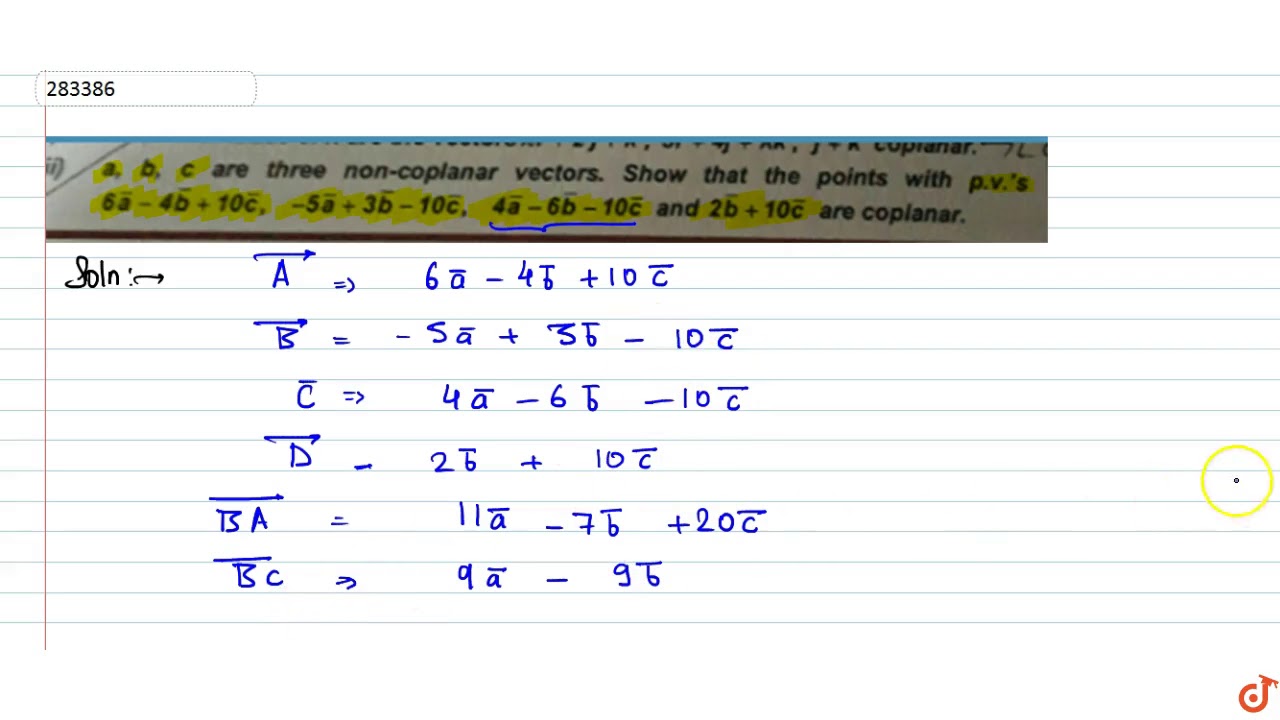 283386
ii) coplanar.
a, b, c are three non-coplanar vectors. Show that the points with p.v.'s
6a̅ − 4b̅ + 10c̅, −5a̅ + 3b̅ − 10c̅, 4a̅ − 6b̅ − 10c̅ and 2b̅ + 10c̅ are coplanar.
Soln:→ A⃗ ⇒ 6a̅ − 4b̅ + 10c̅
B⃗ = − 5a̅ + 3b̅ − 10c̅
C̅ ⇒ 4a̅ − 6b̅ − 10c̅
D⃗ − 2b̅ + 10c̅
B⃗A⃗ = 11a̅ − 7b̅ + 20c̅
B̅C̅ ⇒ 9a̅ − 9b̅